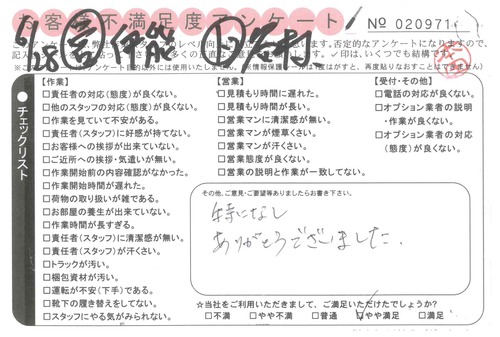 お客様不満足度アンケート
№ 020971
6/28 営 伊能 ト 谷村
チェックリスト
【作業】
□責任者の対応(態度)が良くない。
□他のスタッフの対応(態度)が良くない。
□作業を見ていて不安がある。
□責任者(スタッフ)に好感が持てない。
□お客様への挨拶が出来ていない。
□ご近所への挨拶・気遣いが無い。
□作業開始前の内容確認がなかった。
□作業開始時間が遅れた。
□荷物の取り扱いが雑である。
□お部屋の養生が出来ていない。
□作業時間が長すぎる。
□責任者(スタッフ)に清潔感が無い。
□責任者(スタッフ)が汗くさい。
□トラックが汚い。
□梱包資材が汚い。
□運転が不安(下手)である。
□靴下の履き替えをしてない。
□スタッフにやる気がみられない。
【営業】
□見積もり時間に遅れた。
□見積もり時間が長い。
□営業マンに清潔感が無い。
□営業マンが煙草くさい。
□営業マンが汗くさい。
□営業態度が良くない。
□営業の説明と作業が一致してない。
【受付・その他】
□電話の対応が良くない。
□オプション業者の説明・作業が良くない。
□オプション業者の対応(態度)が良くない。
その他、ご意見・ご要望等ありましたらお書き下さい。
特になし
ありがとうございました.
☆当社をご利用いただきまして、ご満足いただけたでしょうか?
□不満 □やや不満 □普通 ☑やや満足 □満足